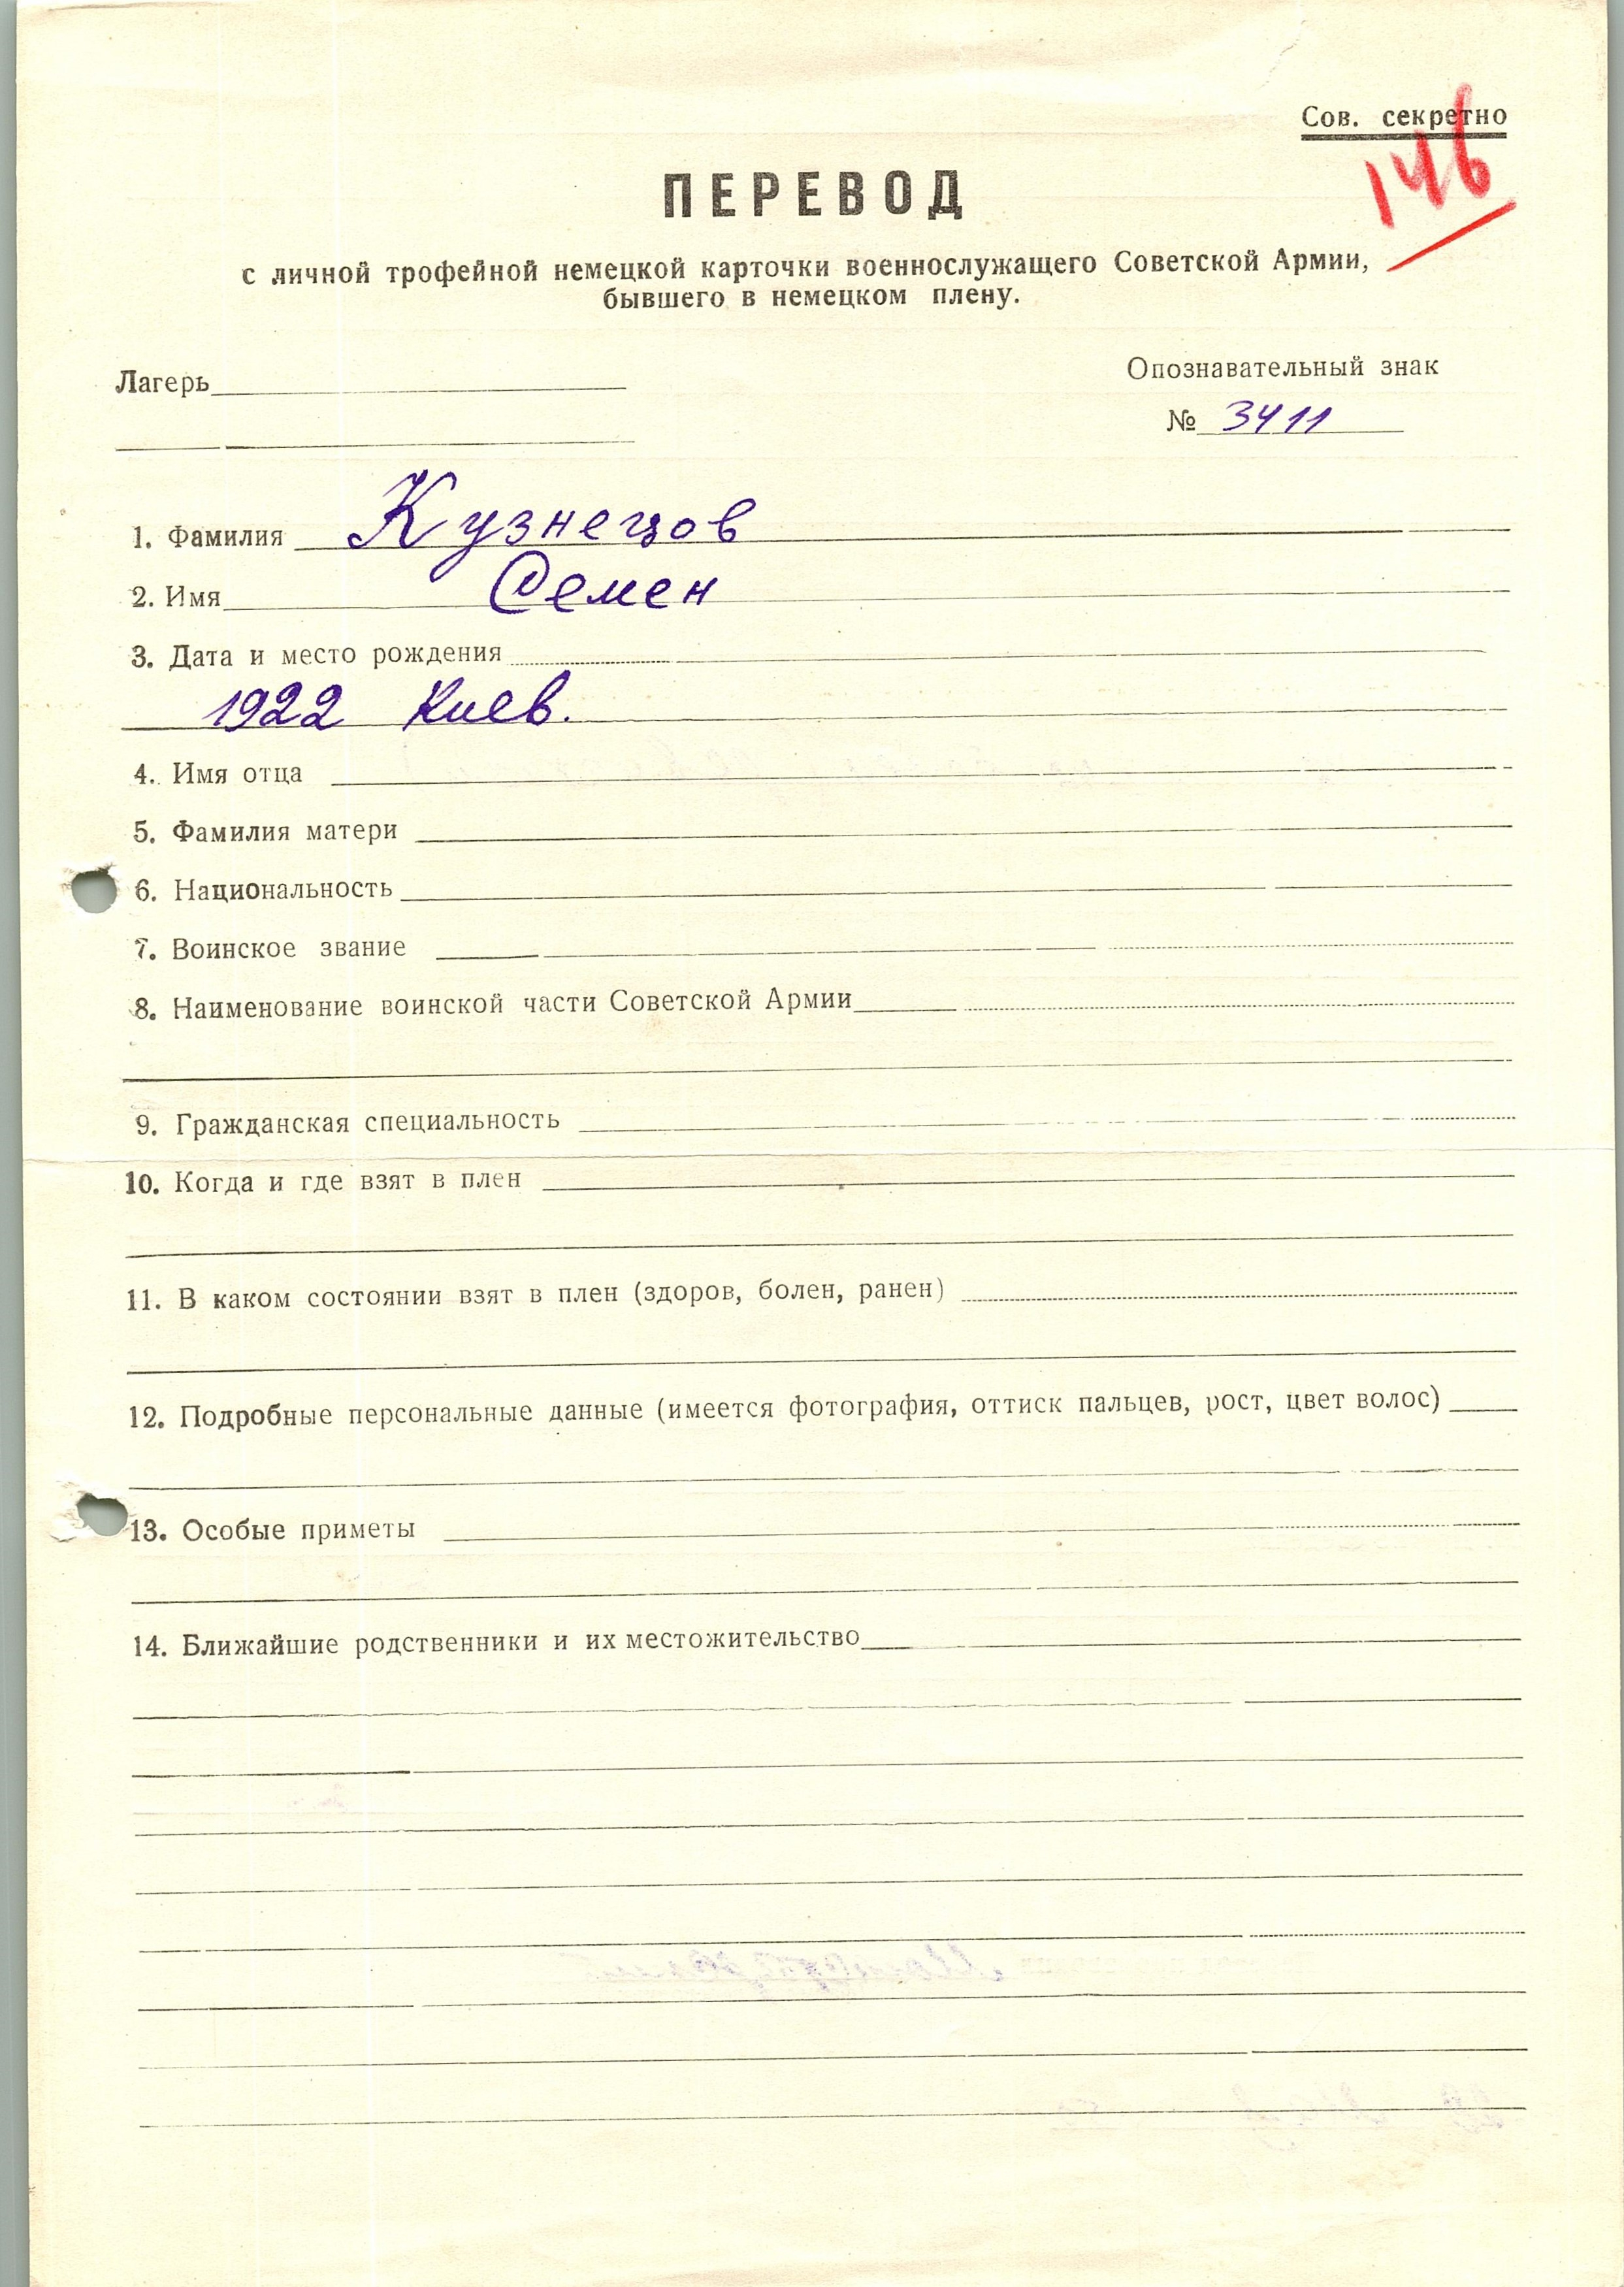 Сов. секретно
146
ПЕРЕВОД
с личной трофейной немецкой карточки военнослужащего Советской Армии,
бывшего в немецком плену.
Лагерь
Опознавательный знак
№ 3411
1. Фамилия Кузнецов
2. Имя Семен
3. Дата и место рождения
1922 Киев.
4. Имя отца
5. Фамилия матери
6. Национальность
7. Воинское звание
8. Наименование воинской части Советской Армии
9. Гражданская специальность
10. Когда и где взят в плен
11. В каком состоянии взят в плен (здоров, болен, ранен)
12. Подробные персональные данные (имеется фотография, оттиск пальцев, рост, цвет волос)
13. Особые приметы
14. Ближайшие родственники и их местожительство